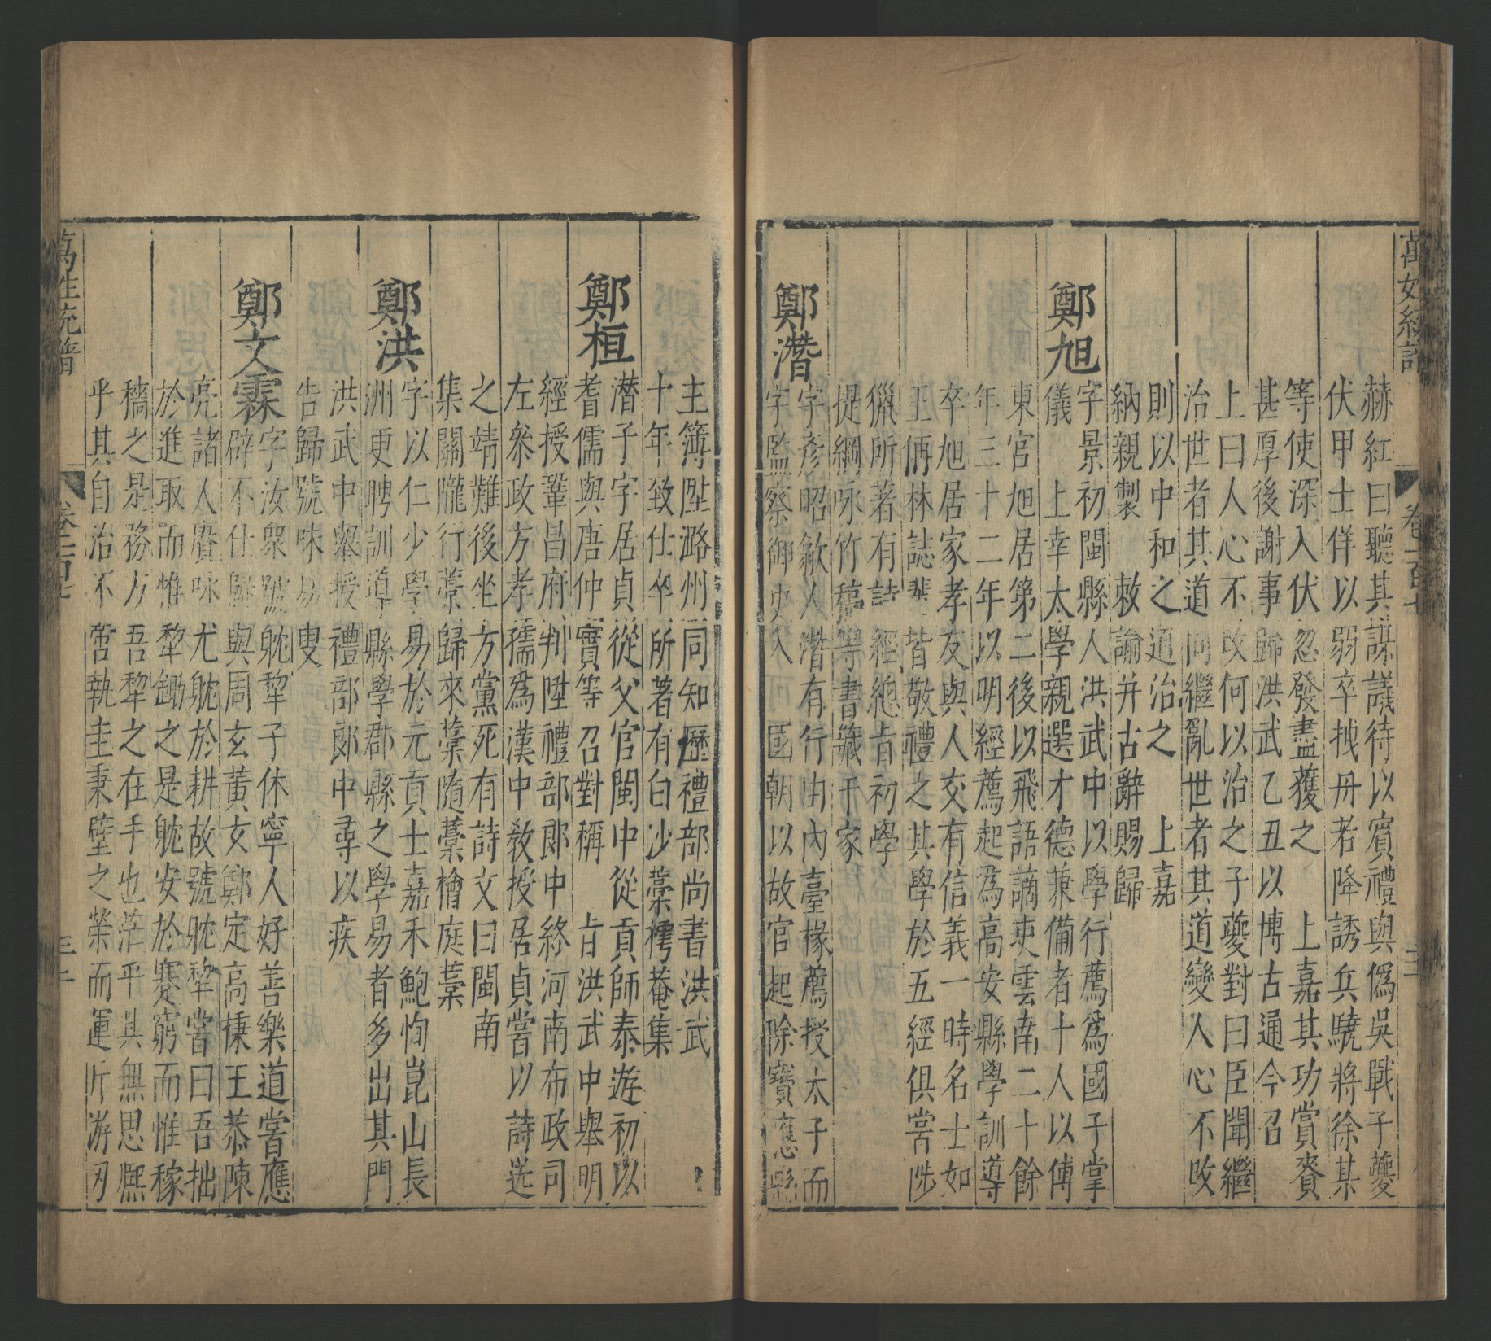 萬姓統譜
卷一百七
赫紅曰聽其謀議待以賓禮與僞吳戰子夔
伏甲士佯以弱卒拽舟若降誘兵驍將徐某
等使深入伏忽發盡獲之 上嘉其功賞賚
甚厚後謝事歸洪武乙丑以博古通今召
上曰人心不攺何以治之子夔對曰臣聞繼
治世者其道同繼亂世者其道變人心不攺
則以中和之道治之 上嘉
納親製 敕諭并古辭賜歸
鄭旭
字景初閩縣人洪武中以學行薦爲國子掌
儀 上幸太學親選才德兼備者十人以傅
東宮旭居第二後以飛語謫吏雲南二十餘
年三十二年以明經薦起為高安縣學訓導
卒旭居家孝友與人交有信義一時名士如
王偁林誌輩皆敬禮之其學於五經俱嘗涉
獵所著有詩經總旨初學
提綱咏竹稿等書藏于家
鄭潛
字彥昭歙人潛有行由內臺掾薦授太子而
字監察御史入 國朝以故官起除寶應縣
主簿陞潞州同知歷禮部尚書洪武
十年致仕卒所著有白沙藁樗菴集
鄭桓
潛子字居貞從父官閩中從貢師泰遊初以
耆儒與唐仲實等召對稱 旨洪武中舉明
經授鞏昌府判陞禮部郎中終河南布政司
左叅政方孝孺爲漢中敎授居貞嘗以詩送
之靖難後坐方黨死有詩文曰閩南
集關隴行藁歸來藁隨藁檜庭藁
鄭洪
字以仁少學易於元貢士嘉禾鮑恂崑山長
洲更聘訓導縣學郡縣之學易者多出其門
洪武中擧授禮部郎中尋以疾
告歸號味易叟
鄭文霖
字汝衆號躭犂子休寧人好善樂道嘗應
辟不仕歸與周玄黃玄鄭定高棅王恭陳
亮諸人賡咏尤躭於耕故號躭犂嘗曰吾拙
於進取而惟犂鋤之是躭安於蹇窮而惟稼
穡之是務方吾犂之在手也茫乎其無思熙
乎其自治不啻執圭秉璧之榮而運斤游刃
萬姓統譜
卷一百七